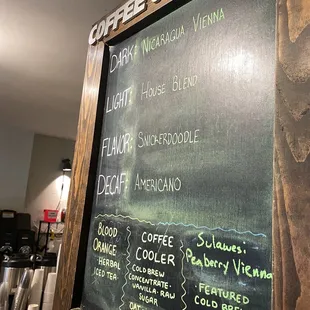 COFFEE
DARK: NICARAGUA VIENNA
LIGHT: HOUSE BLEND
FLAVOR: SNICKERDOODLE
DECAF: AMERICANO
BLOOD
ORANGE
HERBAL
ICED TEA
COFFEE
COOLER
COLD BREW
CONCENTRATE·
VANILLA·RAW
SUGAR
Sulawesi
Peaberry Vienna
- FEATURED
COLD BREW